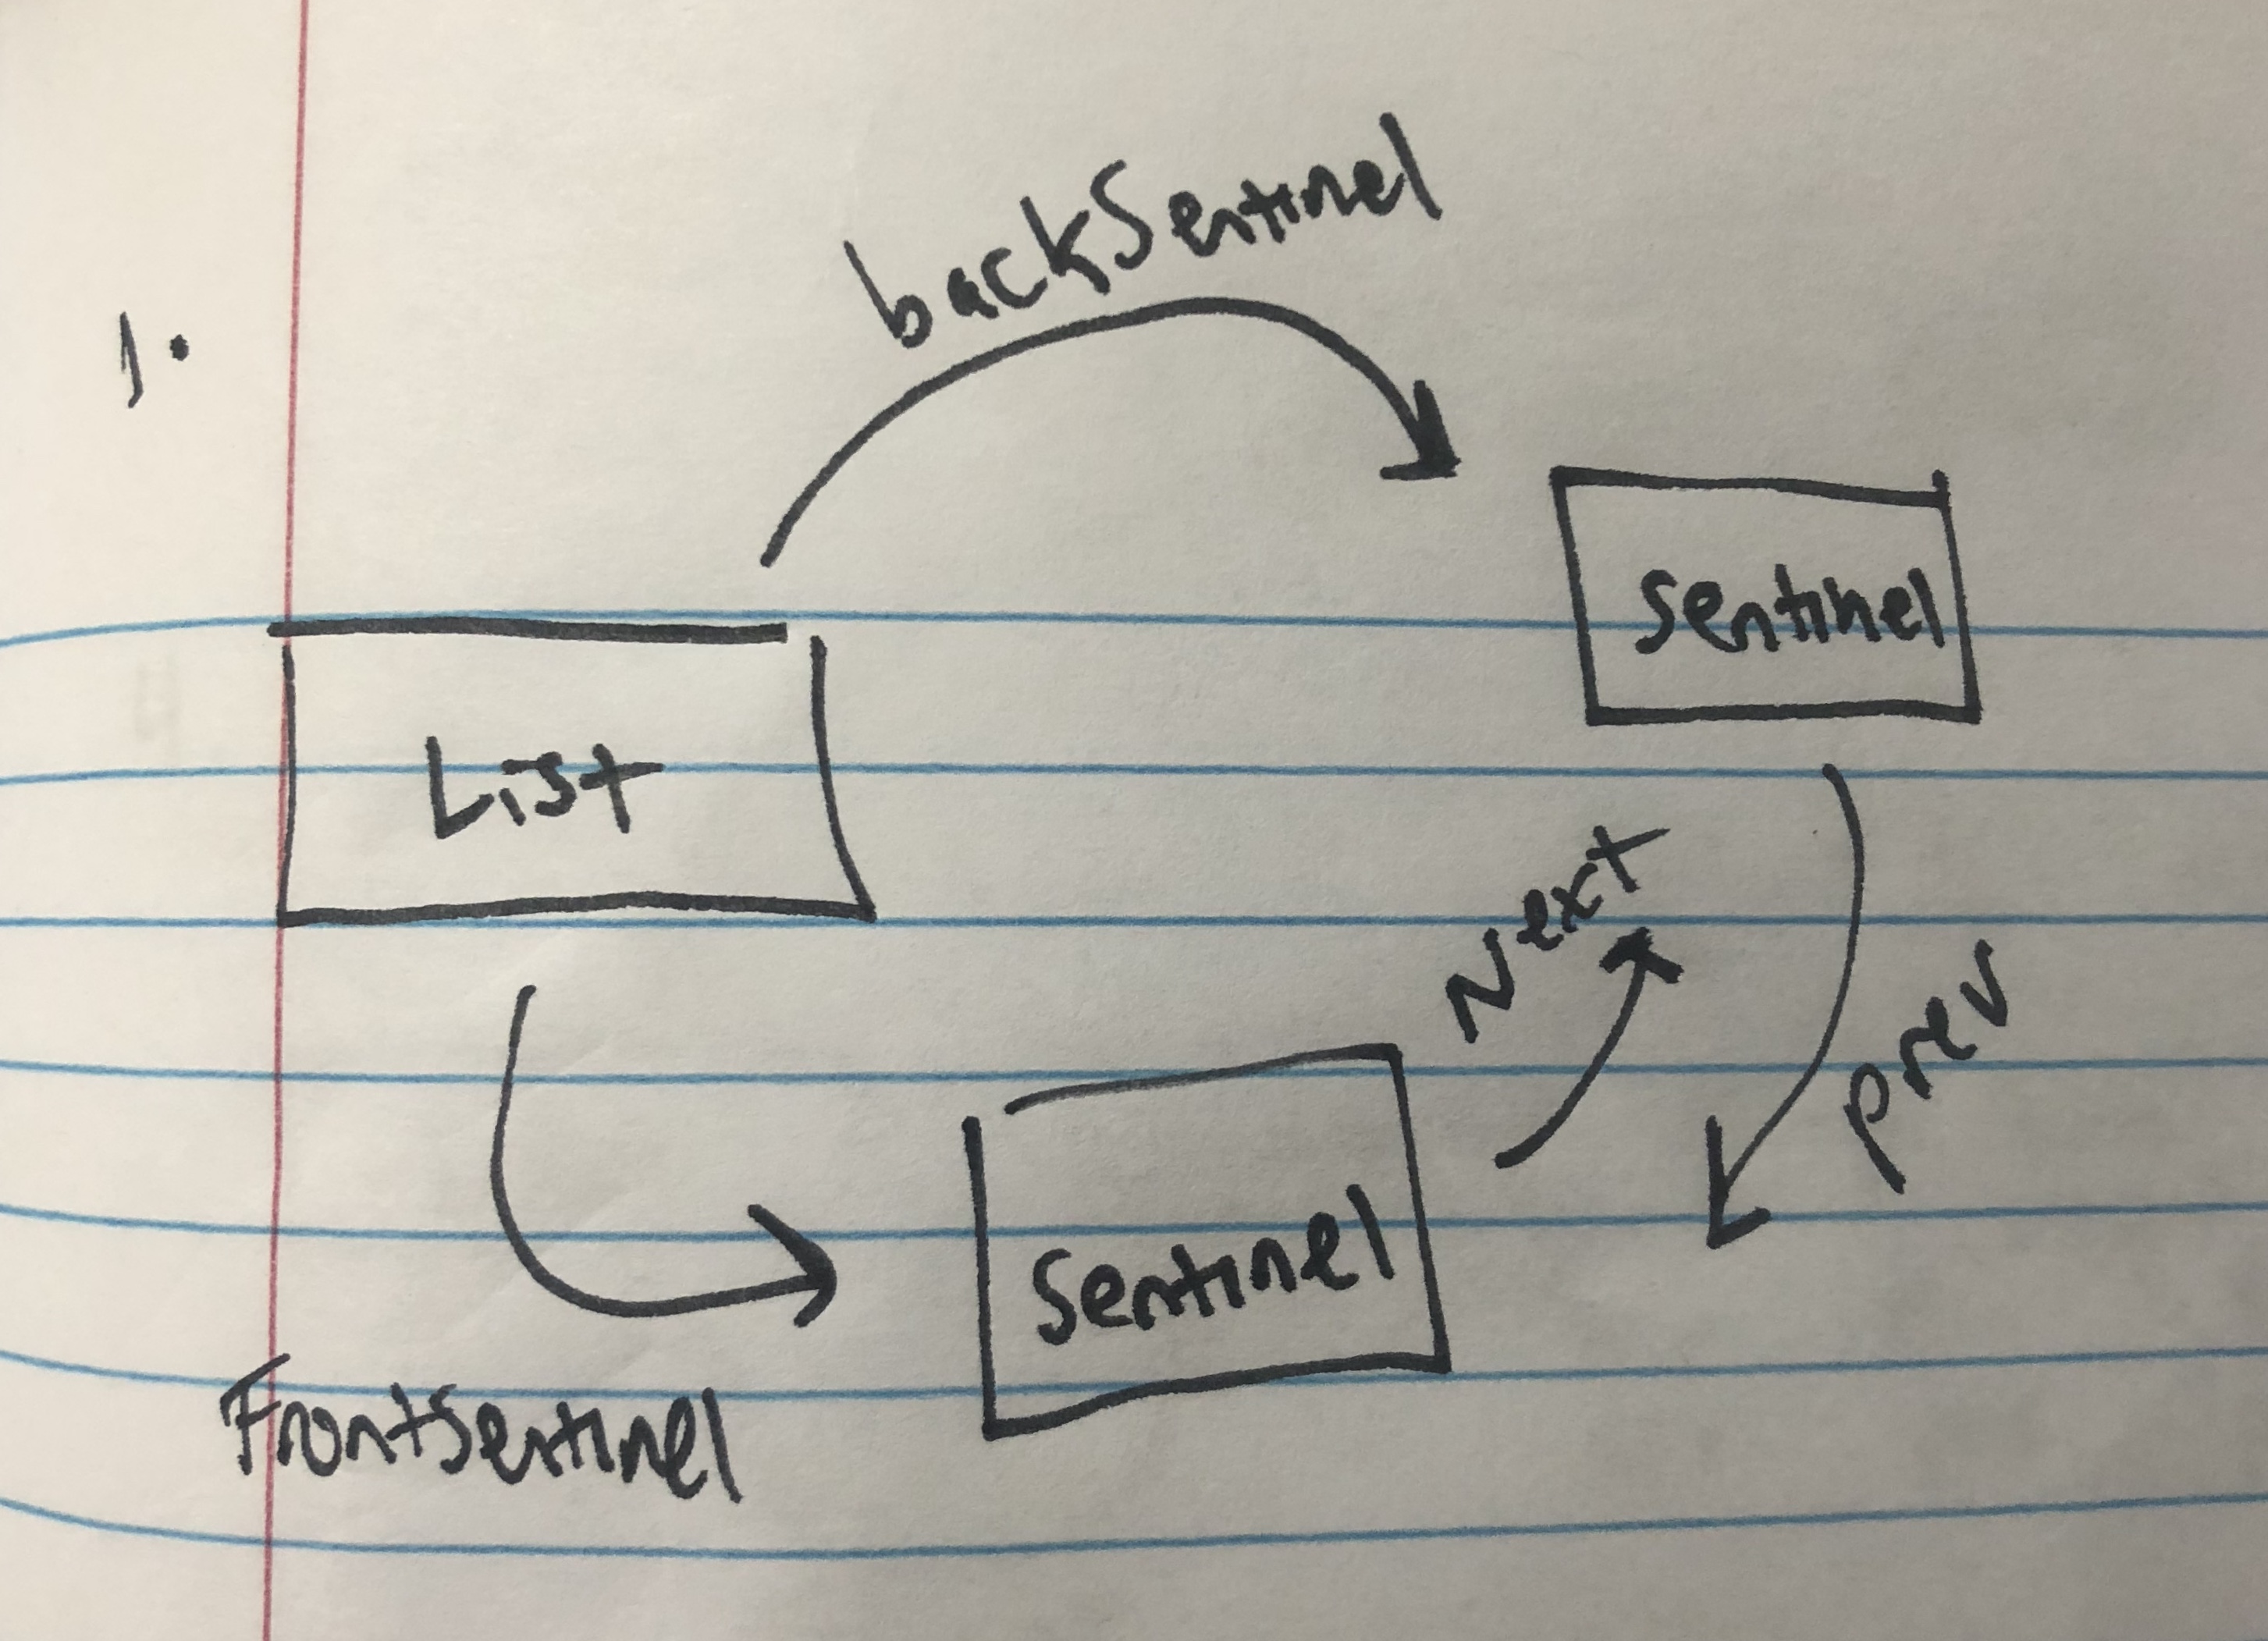 1.
backSentinel
Sentinel
List
Next
prev
Sentinel
FrontSentinel